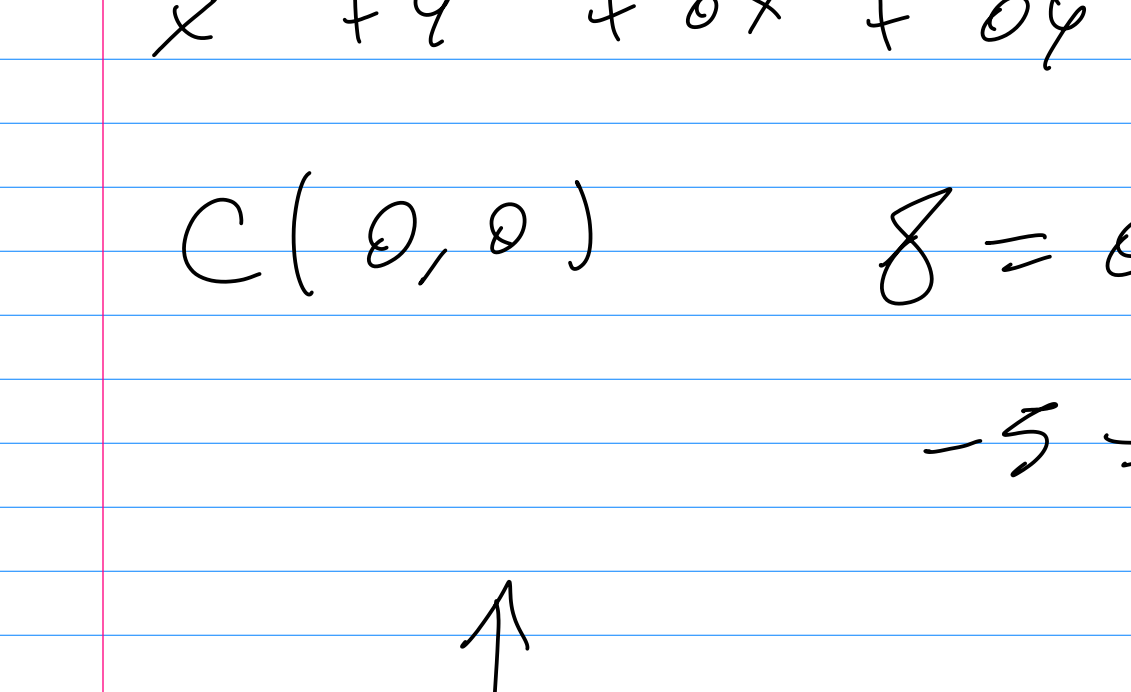 x + y + 0x + 0y
C(0,0) 8 =
-5